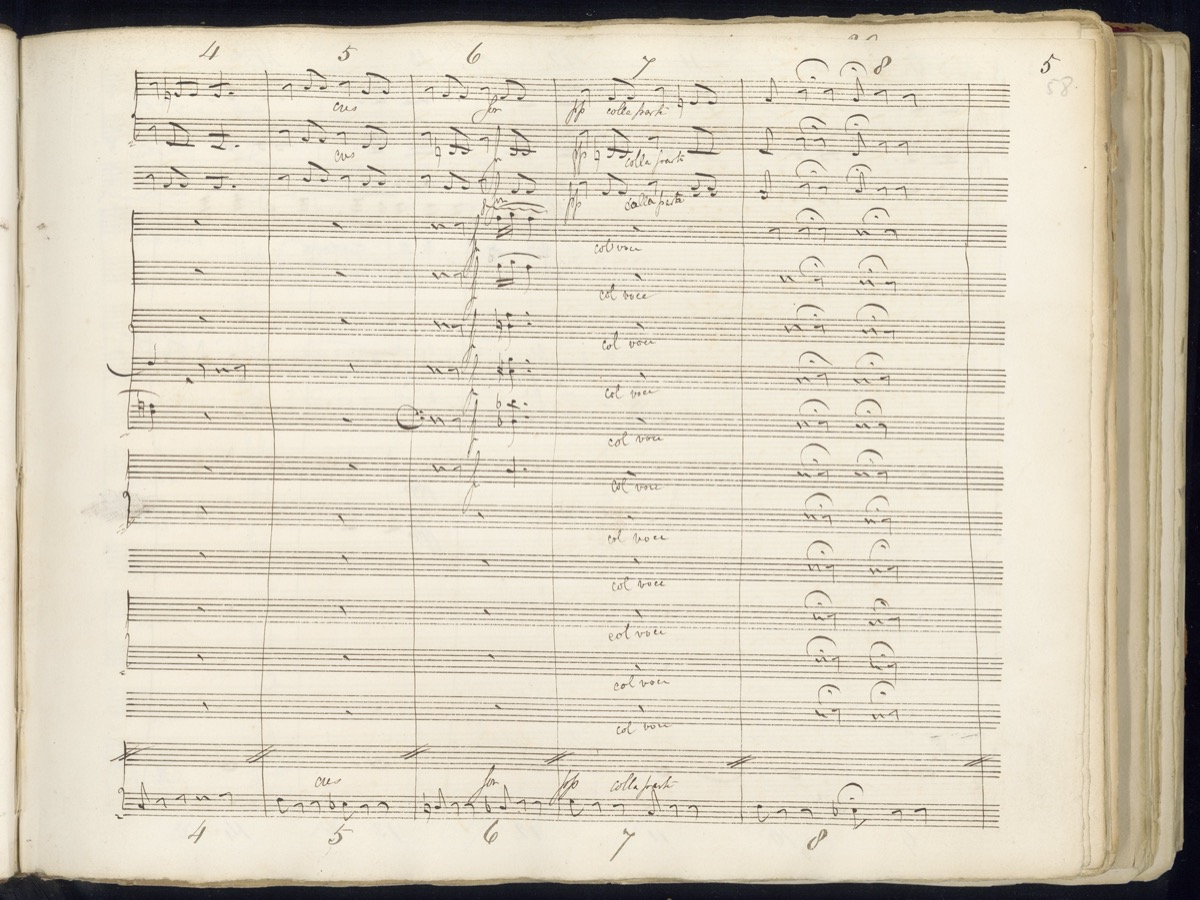 4 5 6 7 8 5
58.
cres for pp colla parte
cres pp colla parte
for pp colla parte
col voce
col voce
col voce
col voce
col voce
col voce
col voce
col voce
col voce
col voce
col voce
cres for pp colla parte
4 5 6 7 8